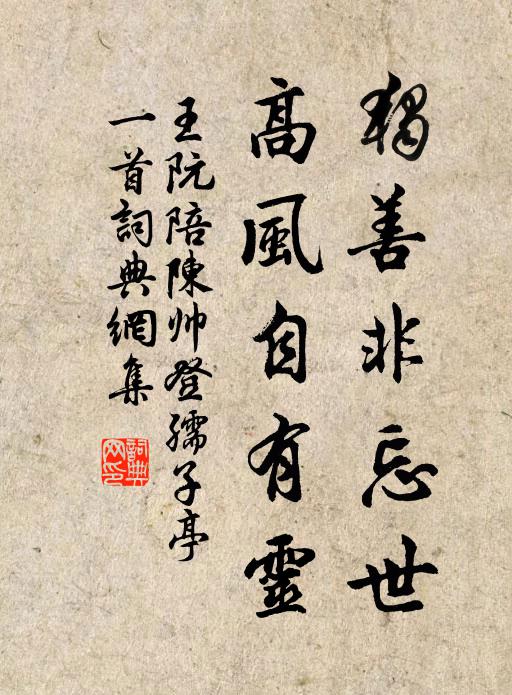 獨善非忘世
高風自有靈
王阮陪陳帅登孺子亭
一首詞典網集
詞典
网印